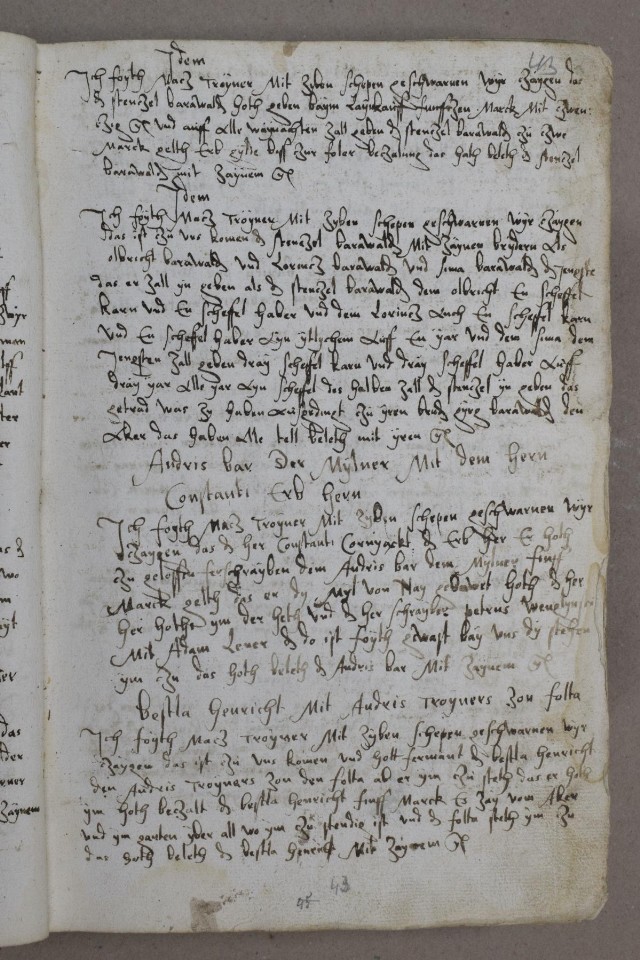 Idem
43
Ich foyth Macz Troyner Mit zyben schepen geschwarnen wyr czaygen das
d stenczel barawald hoth geben baym kauff funfczen Marck Mit czwen
czig gl und auff alle waynachten zall geben d stenczel barawald zu czwe
Marck gelth Erb gylte biss zur foler beczalung das hath beleth d stenczel
barawald mit zaynem gl
Idem
Ich foyth Macz Troyner Mit zyben schepen geschwarnen wyr czaygen
das ist zu uns komen d stenczel barawald Mit zaynen brydern als
olbrecht barawald und Lorencz barawald und sima barawald d jengste
das er zall yn geben als d stenczel barawald dem olbricht En scheffel
karn und En scheffel haber und dem Lorincz auch En scheffel karn
und En scheffel haber ayn ytlychem auff En yar und dem sima dem
Jengsten zall geben dray scheffel karn und dray scheffel haber auff
dray yar alle yar ayn scheffel des halben zall d stenczel yn geben das
getrad was zy haben ausgedinget zu yren bruder barawald den
aker das haben alle tell beleth mit yren gl
Andris bar Der Mylner Mit dem hern
Constanti Erb hern
Ich foyth Macz Troyner Mit zyben schepen geschwarnen wyr
czaygen das d her Constanti Cornyackt d Erb her Er hoth
zu geloffen ferschrayben dem Andris bar dem Mylner funff
Marck gelth das er dy Myl von Nay gebawet hoth d her
her hoths ym der heth und d her schrayber petrus
Mit Adam Lener d do ist foyth gewast bay uns dy stehen
ym czu das hoth beleth d Andris bar Mit zaynem gl
bestla henricht Mit Andris Troyners zon folta
Ich foyth Macz Troyner Mit zyben schepen geschwarnen wyr
czaygen das ist zu uns komen und hott fermant d bestla henricht
den Andris Troyners zon den folta ab er ym czu steth das er hoth
ym hoth beczalt d bestla henricht funff Marck Es zay vom aker
und ym garten yber all wo ym zu stendig ist und d folta steth ym zu
das hoth beleth d bestla henricht Mit zaynem gl
43
45